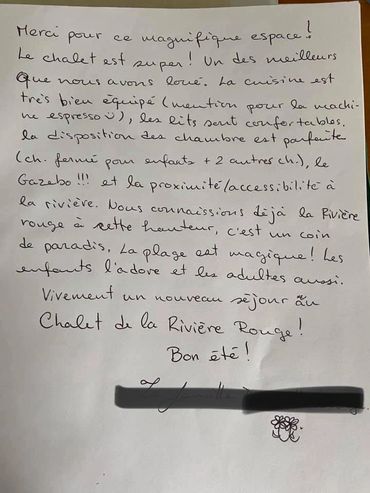 Merci pour ce magnifique espace!
Le chalet est super! Un des meilleurs
que nous avons loué. La cuisine est
très bien équipé (mention pour la machi-
ne espresso ü), les lits sont confortables.
la disposition des chambre est parfaite
(ch. fermé pour enfants + 2 autres ch.), le
Gazebo!!! et la proximité/accessibilité à
la rivière. Nous connaissions déjà la Rivière
rouge à cette hauteur, c'est un coin
de paradis. La plage est magique! Les
enfants l'adore et les adultes aussi.
Vivement un nouveau séjour au
Chalet de la Rivière Rouge!
Bon été!